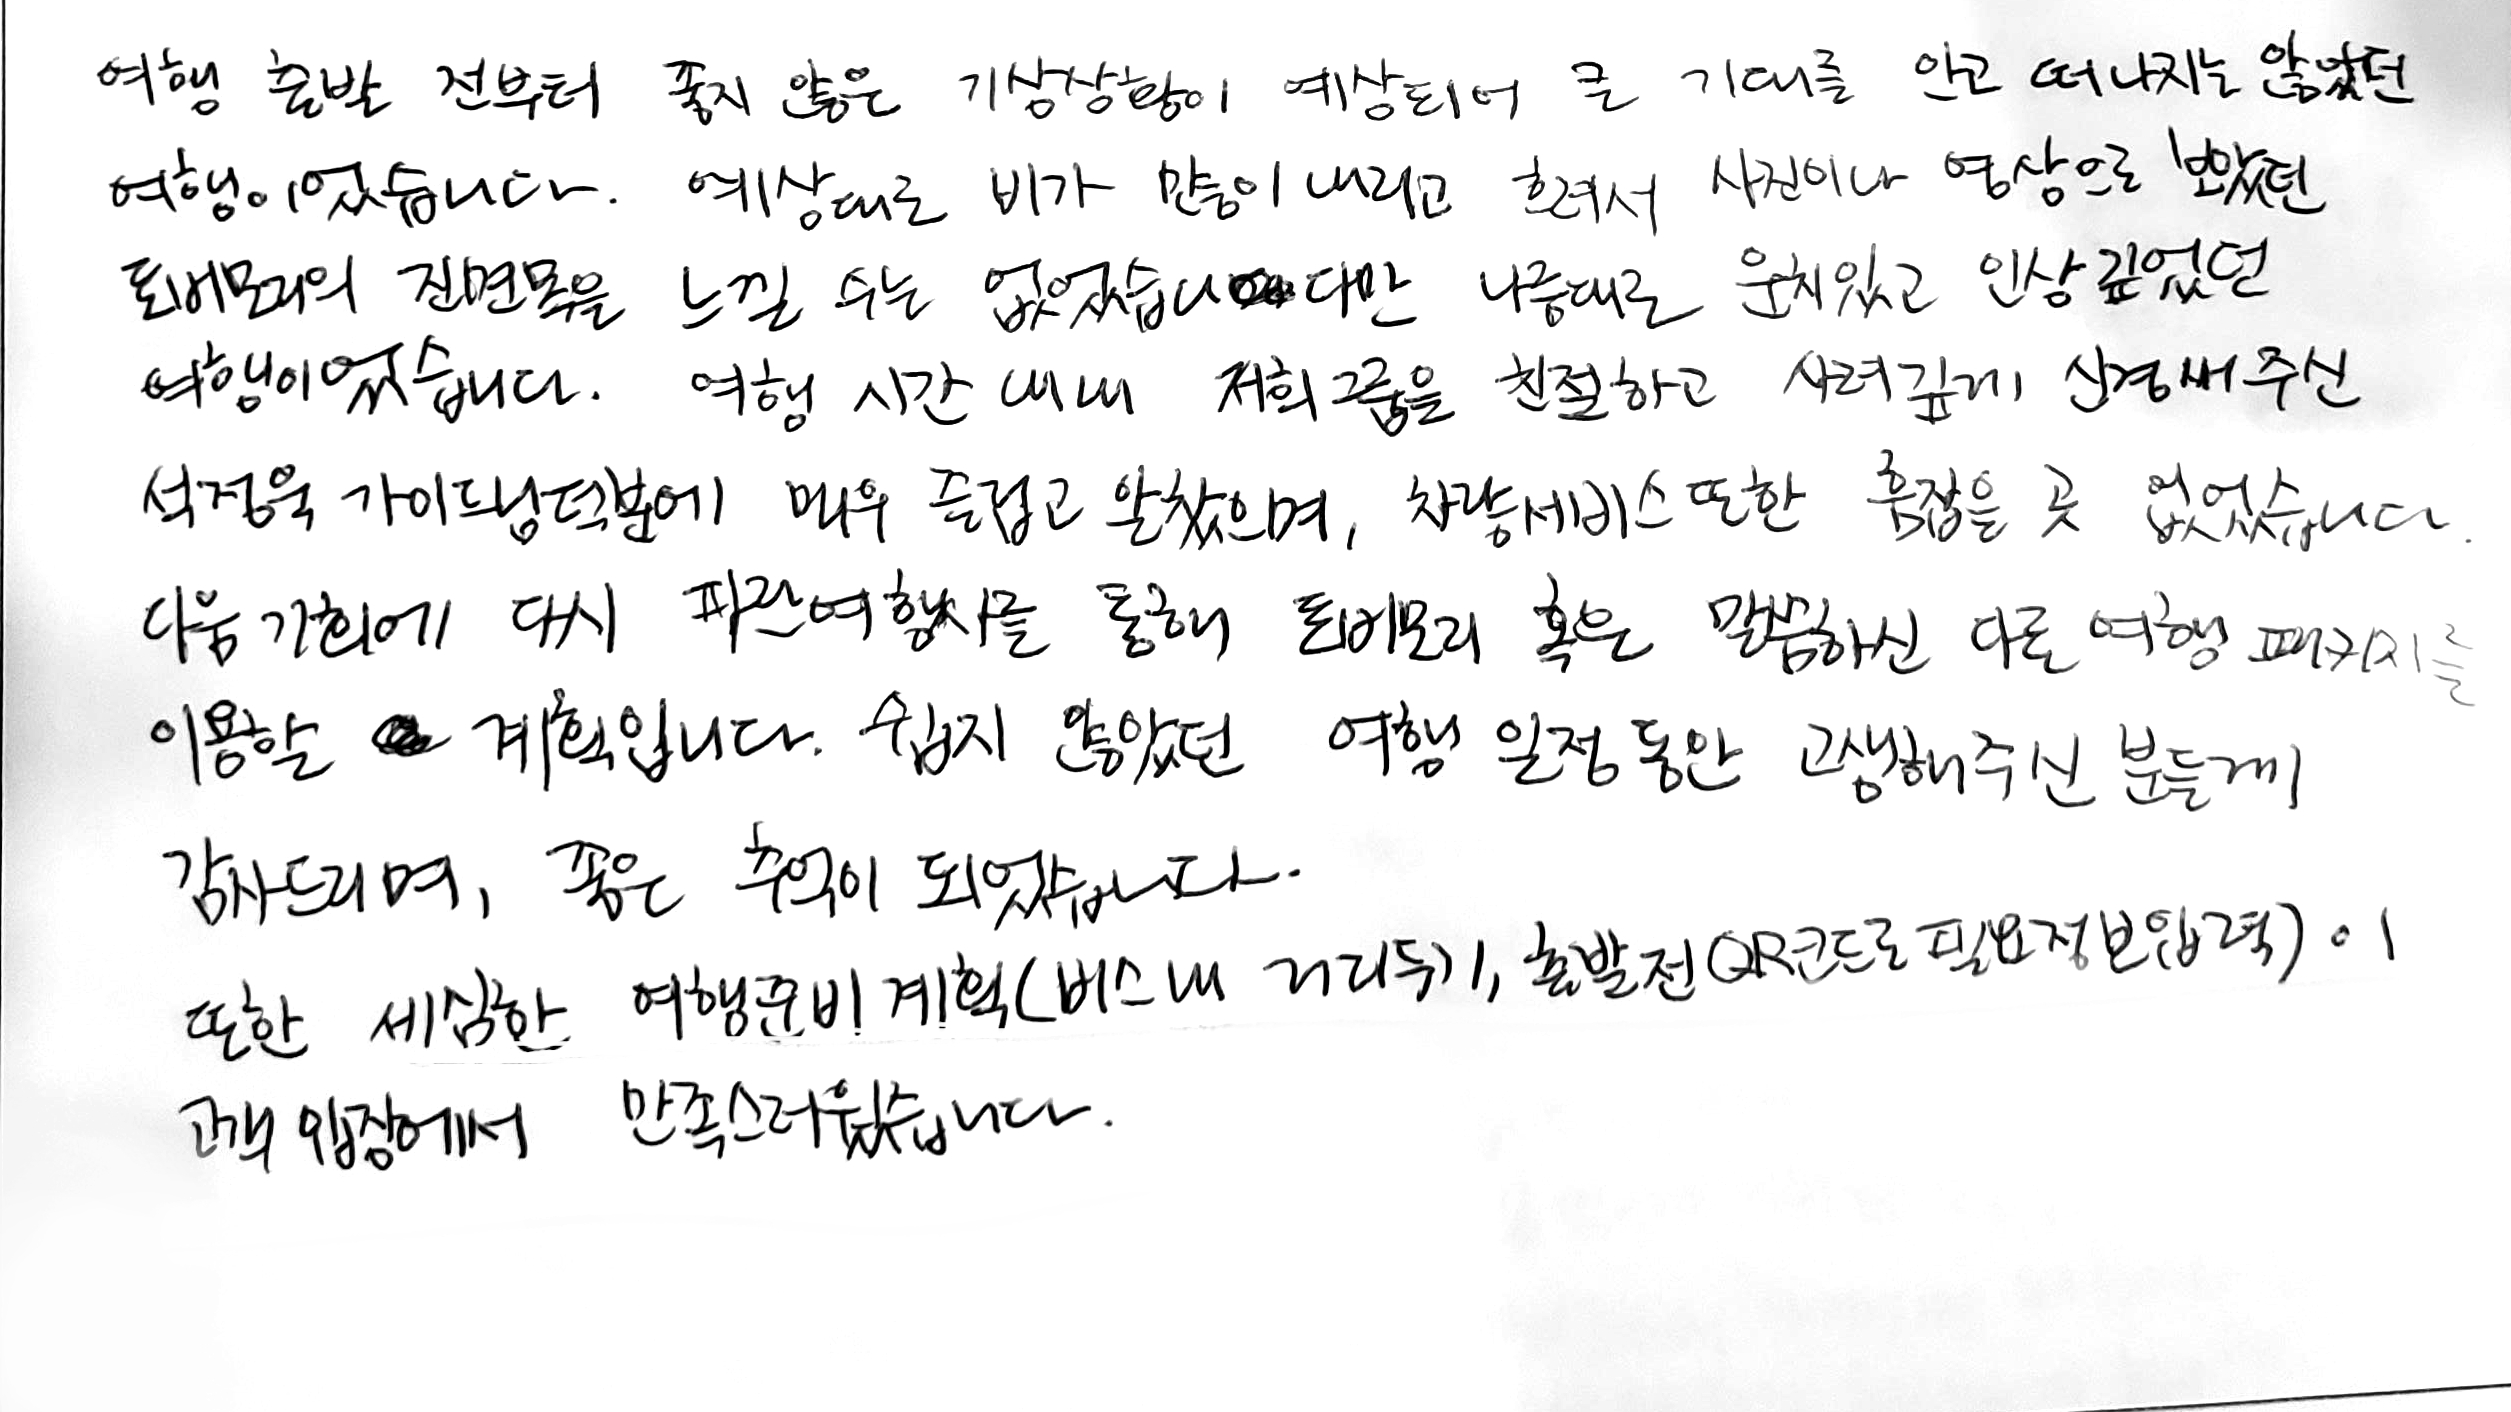 여행 출발 전부터 좋지 않은 기상상황이 예상되어 큰 기대를 안고 떠나지는 않았던
여행이었습니다. 예상대로 비가 많이 내리고 흐려서 사진이나 영상으로 보았던
토버모리의 진면목을 느낄 수는 없었습니다만 나름대로 운치있고 인상깊었던
여행이었습니다. 여행 시간 내내 저희그룹을 친절하고 사려깊게 신경써주신
석정욱 가이드님덕분에 매우 즐겁고 알찼으며, 차량서비스 또한 흠잡을 곳 없었습니다.
다음 기회에 다시 파란여행사를 통해 토버모리 혹은 말씀하신 다른 여행 패키지를
이용할 계획입니다. 쉽지 않았던 여행 일정동안 고생해주신 분들께
감사드리며, 좋은 추억이 되었습니다.
또한 세심한 여행준비계획(버스내 거리두기, 출발전 QR코드로 필요정보입력)이
고객 입장에서 만족스러웠습니다.